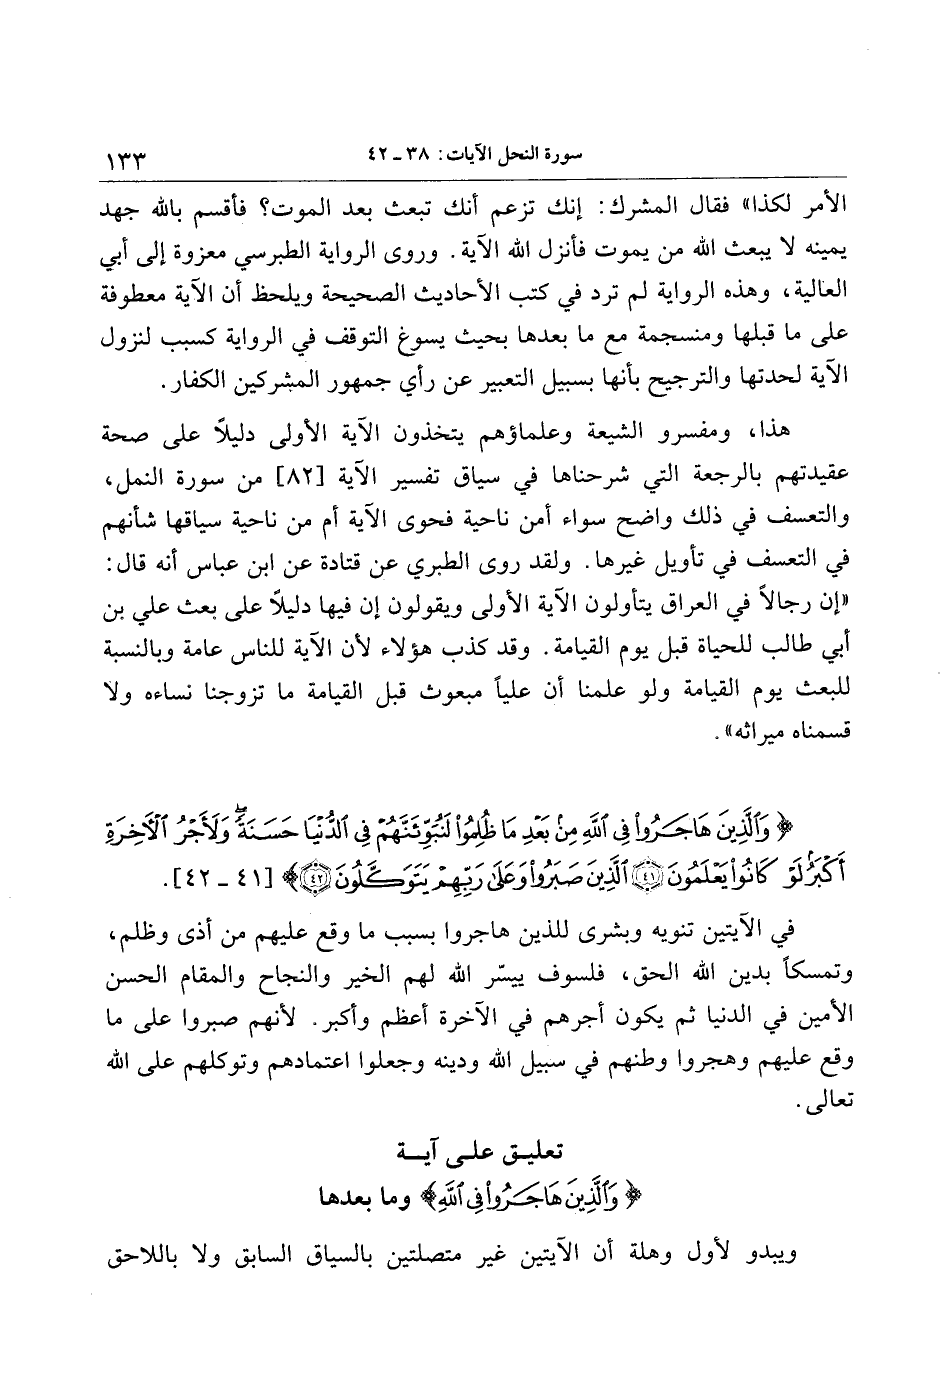 سورة النحل الآيات: ٣٨ ـ ٤٢
١٣٣
الأمر لكذا» فقال المشرك: إنك تزعم أنك تبعث بعد الموت؟ فأقسم بالله جهد
يمينه لا يبعث الله من يموت فأنزل الله الآية. وروى الرواية الطبرسي معزوة إلى أبي
العالية، وهذه الرواية لم ترد في كتب الأحاديث الصحيحة ويلحظ أن الآية معطوفة
على ما قبلها ومنسجمة مع ما بعدها بحيث يسوغ التوقف في الرواية كسبب لنزول
الآية لحدتها والترجيح بأنها بسبيل التعبير عن رأي جمهور المشركين الكفار.
هذا، ومفسرو الشيعة وعلماؤهم يتخذون الآية الأولى دليلاً على صحة
عقيدتهم بالرجعة التي شرحناها في سياق تفسير الآية [٨٢] من سورة النمل،
والتعسف في ذلك واضح سواء أمن ناحية فحوى الآية أم من ناحية سياقها شأنهم
في التعسف في تأويل غيرها. ولقد روى الطبري عن قتادة عن ابن عباس أنه قال:
«إن رجالاً في العراق يتأولون الآية الأولى ويقولون إن فيها دليلاً على بعث علي بن
أبي طالب للحياة قبل يوم القيامة. وقد كذب هؤلاء لأن الآية للناس عامة وبالنسبة
للبعث يوم القيامة ولو علمنا أن علياً مبعوث قبل القيامة ما تزوجنا نساءه ولا
قسمناه ميراثه».
﴿ وَالَّذِينَ هَاجَرُوا فِى اللَّهِ مِنْ بَعْدِ مَا ظُلِمُوا لَنُبَوِّئَنَّهُمْ فِى الدُّنْيَا حَسَنَةً ۖ وَلَأَجْرُ الْآخِرَةِ
أَكْبَرُ لَوْ كَانُوا يَعْلَمُونَ ٤١ الَّذِينَ صَبَرُوا وَعَلَىٰ رَبِّهِمْ يَتَوَكَّلُونَ ٤٢ ﴾ [٤١ ـ ٤٢].
في الآيتين تنويه وبشرى للذين هاجروا بسبب ما وقع عليهم من أذى وظلم،
وتمسكاً بدين الله الحق، فلسوف ييسّر الله لهم الخير والنجاح والمقام الحسن
الأمين في الدنيا ثم يكون أجرهم في الآخرة أعظم وأكبر. لأنهم صبروا على ما
وقع عليهم وهجروا وطنهم في سبيل الله ودينه وجعلوا اعتمادهم وتوكلهم على الله
تعالى.
تعليق على آية
﴿ وَالَّذِينَ هَاجَرُوا فِى اللَّهِ ﴾ وما بعدها
ويبدو لأول وهلة أن الآيتين غير متصلتين بالسياق السابق ولا باللاحق